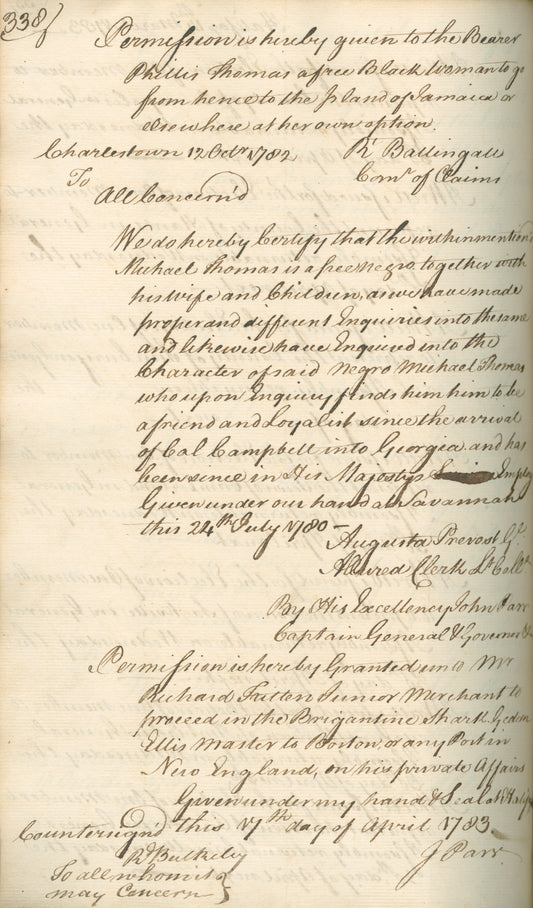 338
Permission is hereby given to the Bearer
Phillis Thomas a free Black Woman to go
from hence to the Island of Jamaica or
elsewhere at her own option.
Charlestown 12 Octr 1782 Rt Ballingall
Comr of Claims
To
All Concern'd
We do hereby Certify that the within mention'd
Michael Thomas is a free negro together with
his Wife and Children, as we have made
proper and different Enquiries into the same
and likewise have Enquired into the
Character of said negro Michael Thomas
who upon Inquiry finds him him to be
a friend and Loyalist since the arrival
of Col Campbell into Georgia and has
been since in His Majestys Employ
Given under our hand at Savannah
this 24th July 1780 -
Augusta Prevost
Allured Clerk Lt Coll
By His Excellency John Parr
Captain General & Governor &
Permission is hereby Granted unto Mr
Richard Tritten Junior Merchant to
proceed in the Brigantine Shark
Ellis Master to Boston, or any Port in
New England, on his private Affairs
Given under my hand & Seal at
Countersign'd this 17th day of April 1783
Rd Bulkely J Parr
To all whom it
may Concern